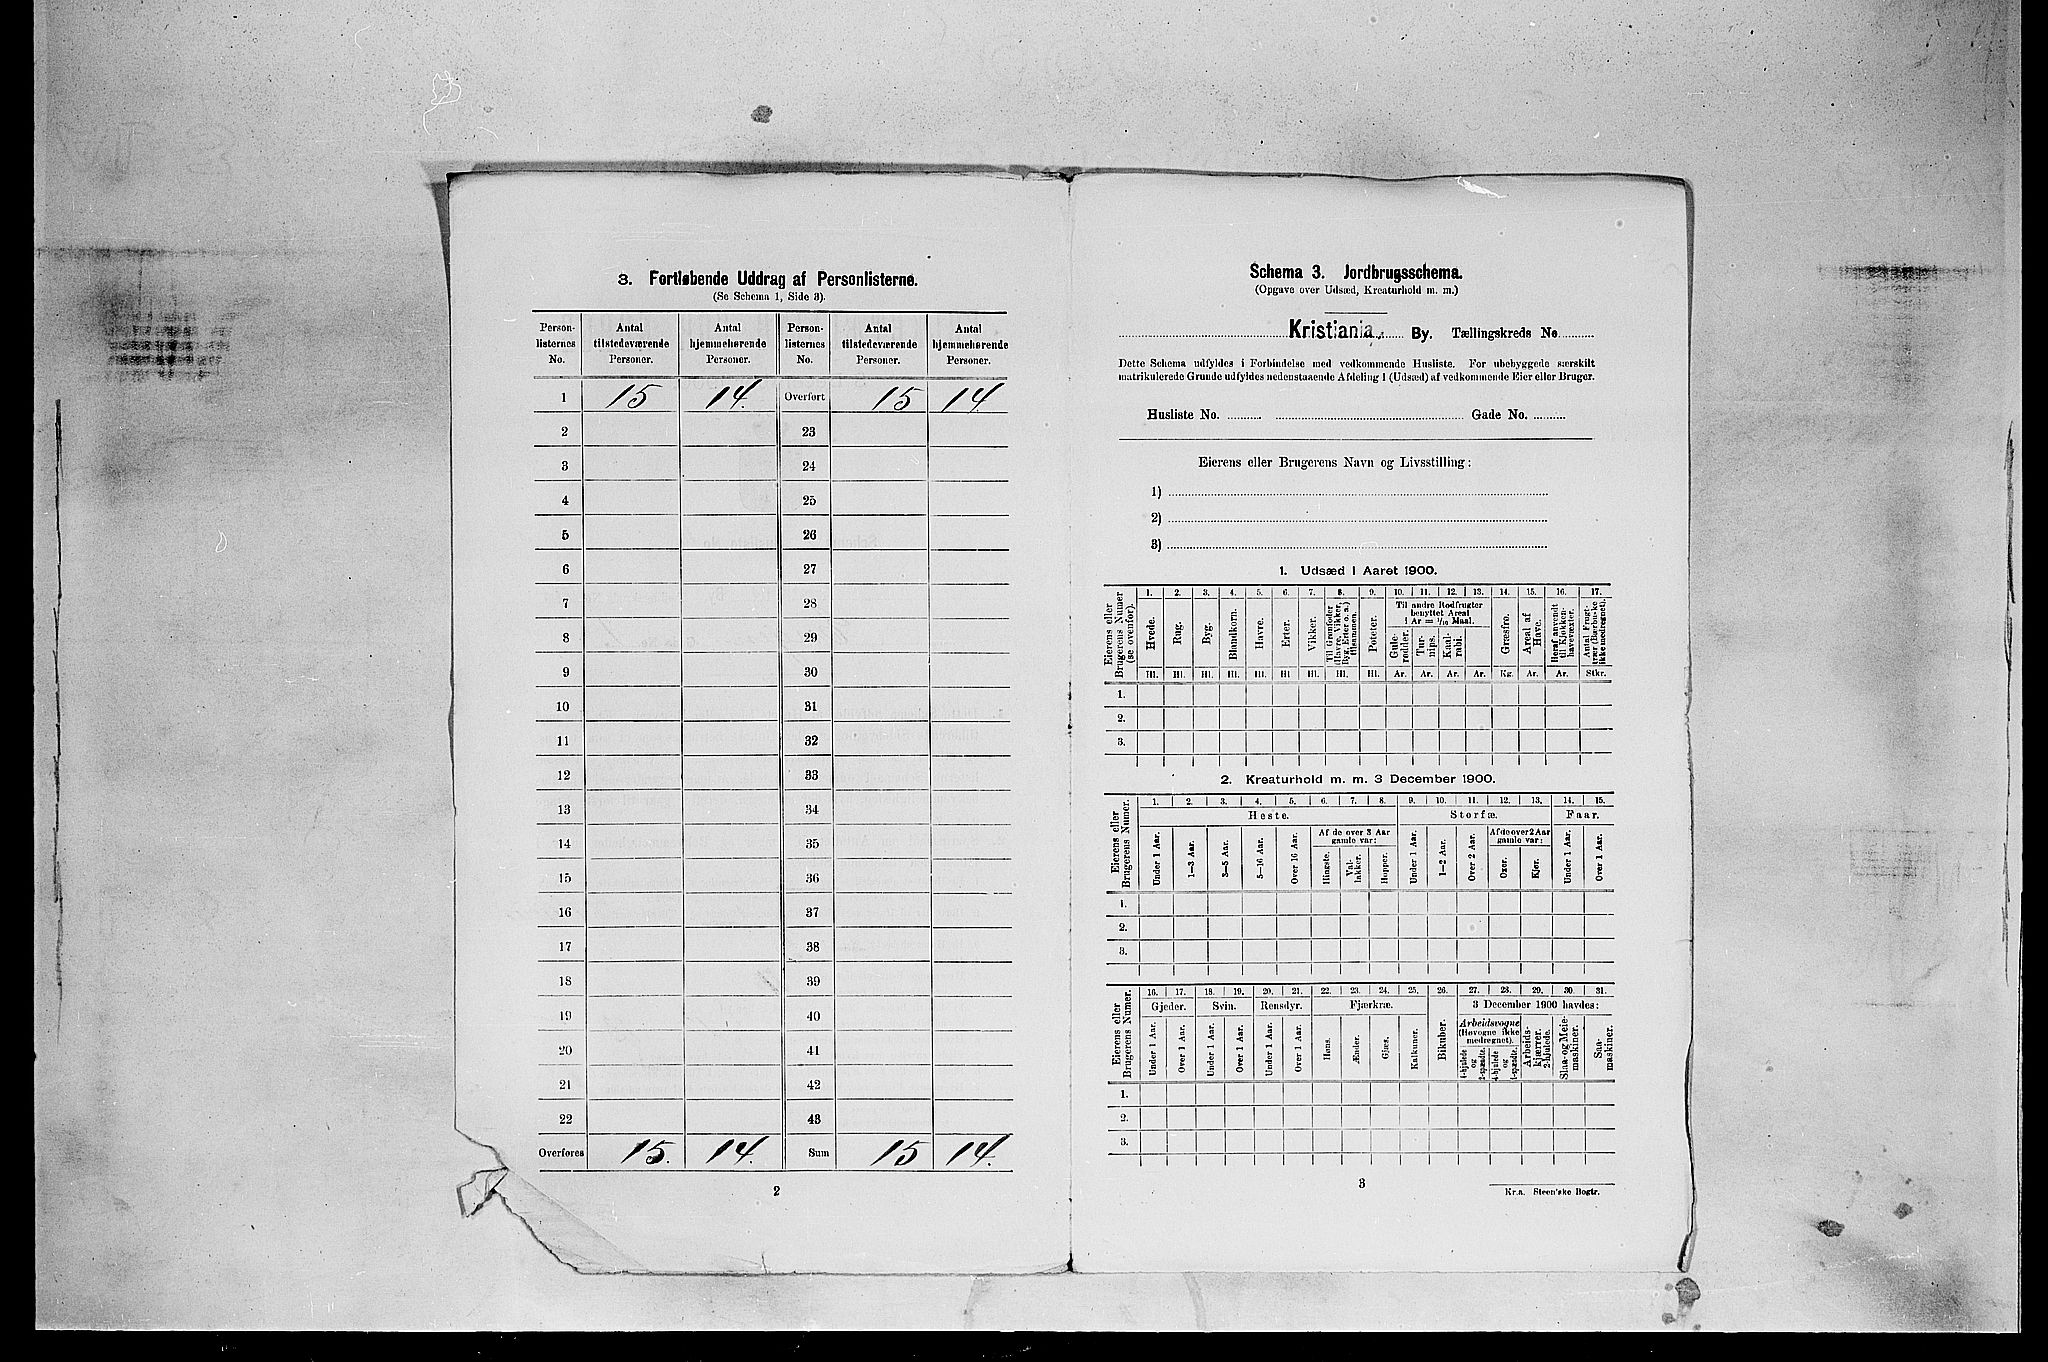 3. Fortløbende Uddrag af Personlisterne.
(Se Schema 1, Side 3).
Person-listernes No. Antal tilstedeværende Personer. Antal hjemmehørende Personer. Person-listernes No. Antal tilstedeværende Personer. Antal hjemmehørende Personer.
1 15 14. Overført 15 14
2 23
3 24
4 25
5 26
6 27
7 28
8 29
9 30
10 31
11 32
12 33
13 34
14 35
15 36
16 37
17 38
18 39
19 40
20 41
21 42
22 43
Overføres 15. 14. Sum 15 14.
2
Schema 3. Jordbrugsschema.
(Opgave over Udsæd, Kreaturhold m. m.)
Kristiania By. Tællingskreds No
Dette Schema udfyldes i Forbindelse med vedkommende Husliste. For ubebyggede særskilt
matrikulerede Grunde udfyldes nedenstaaende Afdeling 1 (Udsæd) af vedkommende Eier eller Bruger.
Husliste No. Gade No.
Eierens eller Brugerens Navn og Livsstilling:
1)
2)
3)
1. Udsæd i Aaret 1900.
Eierens eller Brugerens Numer (se ovenfor).
1. 2. 3. 4. 5. 6. 7. 8. 9. 10. 11. 12. 13. 14. 15. 16. 17.
Til andre Rodfrugter benyttet Areal
1 Ar = 1/10 Maal.
Hvede. Rug. Byg. Blandkorn. Havre. Erter. Vikker. Til Grønfoder (Havre, Vikker, Byg, Erter o. a.) tilsammen. Poteter. Gulerødder. Turnips. Kaalrabi. Græsfrø. Areal af Have. Heraf anvendt til Kjøkkenhavevæxter. Antal Frugttrær (Bærbuske ikke medregnet).
Hl. Hl. Hl. Hl. Hl. Hl Hl. Hl. Hl. Ar. Ar. Ar. Ar. Kg. Ar. Ar. Stkr.
1.
2.
3.
2. Kreaturhold m. m. 3 December 1900.
Eierens eller Brugerens Numer.
1. 2. 3. 4. 5. 6. 7. 8. 9. 10. 11. 12. 13. 14. 15.
Heste. Storfæ. Faar.
Af de over 3 Aar gamle var: Af de over 2 Aar gamle var:
Under 1 Aar. 1–3 Aar. 3–5 Aar. 5–16 Aar. Over 16 Aar. Hingste. Vallakker. Hopper. Under 1 Aar. 1–2 Aar. Over 2 Aar. Oxer. Kjør. Under 1 Aar. Over 1 Aar.
1.
2.
3.
Eierens eller Brugerens Numer.
16. 17. 18. 19. 20. 21. 22. 23. 24. 25. 26. 27. 28. 29. 30. 31.
Gjeder. Svin. Rensdyr. Fjærkræ. 3 December 1900 havdes:
Under 1 Aar. Over 1 Aar. Under 1 Aar. Over 1 Aar. Under 1 Aar. Over 1 Aar. Høns. Ænder. Gjæs. Kalkuner. Bikuber. Arbeidsvogne (Høvogne ikke medregnet). 4-hjulede og 2-spændte. 4-hjulede og 1-spændte. Arbeids-kjærrer. 2-hjulede. Slaa- og Meiemaskiner. Saamaskiner.
1.
2.
3.
3
Kr.a. Steen'ske Bogtr.